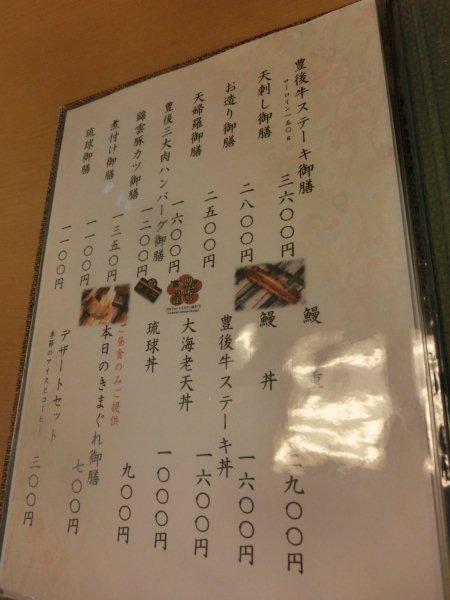 豊後牛ステーキ御膳 三六〇〇円
サーロイン一五〇g
天刺し御膳 二八〇〇円
お造り御膳 二五〇〇円
天婦羅御膳 一六〇〇円
豊後三大肉ハンバーグ御膳 一二〇〇円
錦雲豚カツ御膳 一三五〇円
煮付け御膳 一一〇〇円
琉球御膳 一一〇〇円
鰻重 二九〇〇円
鰻丼 一六〇〇円
豊後牛ステーキ丼 一六〇〇円
大海老天丼 一〇〇〇円
琉球丼 九〇〇円
ご昼食のみご提供
本日のきまぐれ御膳 七〇〇円
デザートセット 三〇〇円
季節のアイスとコーヒー